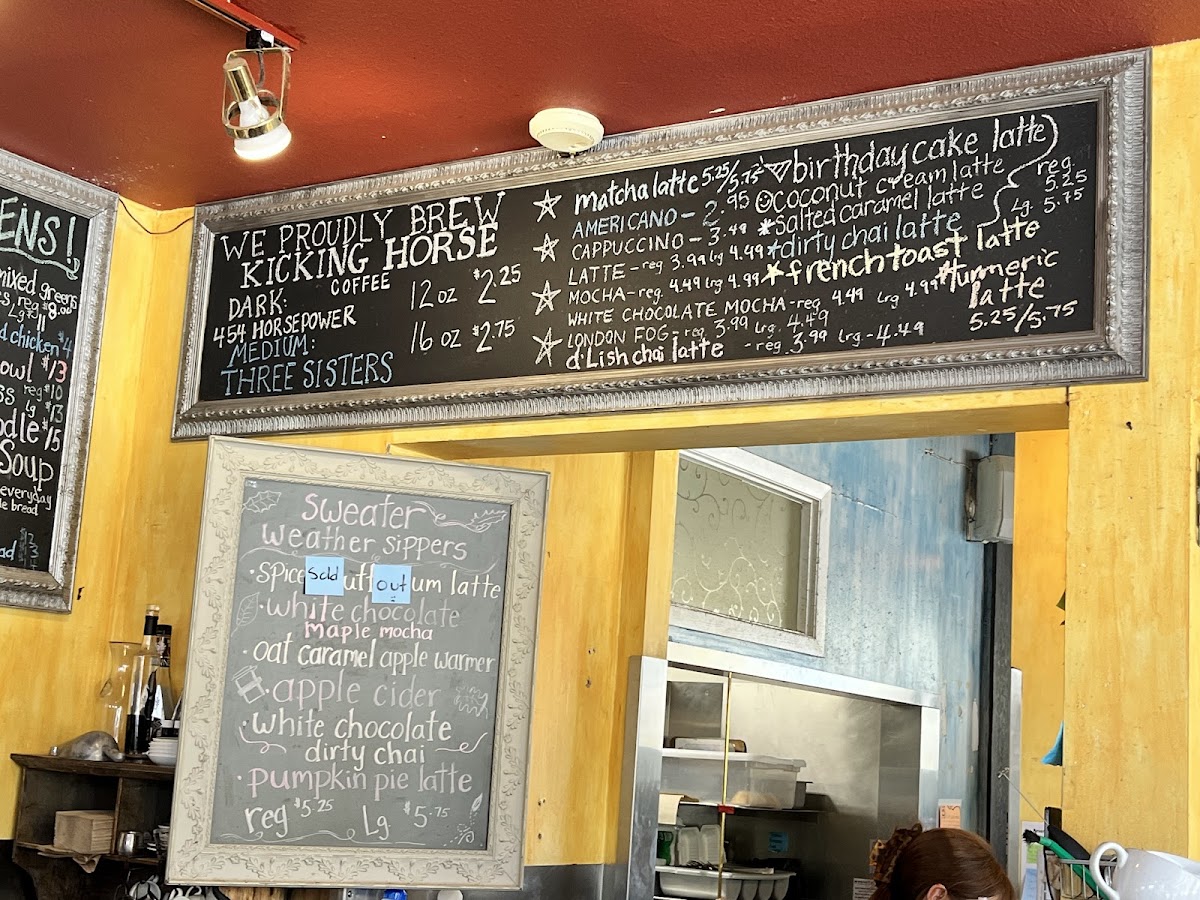 ENS!
mixed greens
reg $8.00
Lg 11
d chicken $4
owl $13
reg $10
ss lg $13
odle $15
Soup
everyday
le bread
ad
WE PROUDLY BREW
KICKING HORSE
COFFEE
DARK:
454 HORSEPOWER
MEDIUM:
THREE SISTERS
12 oz $2.25
16 oz $2.75
matcha latte 5.25/5.75
AMERICANO - 2.95
CAPPUCCINO - 3.49
LATTE - reg 3.99 lg 4.49
MOCHA - reg. 4.49 lrg 4.99
WHITE CHOCOLATE MOCHA - reg 4.49 lrg 4.99
LONDON FOG - reg 3.99 lrg. 4.49
d'Lish chai latte - reg. 3.99 lrg. - 4.49
birthday cake latte
coconut cream latte
*salted caramel latte
*dirty chai latte
reg. 5.25
Lg. 5.75
★french toast latte
*turmeric
latte
5.25/5.75
sweater
weather sippers
•spice sold uff out um latte
•white chocolate
maple mocha
•oat caramel apple warmer
•apple cider
•white chocolate
dirty chai
•pumpkin pie latte
reg $5.25 Lg $5.75